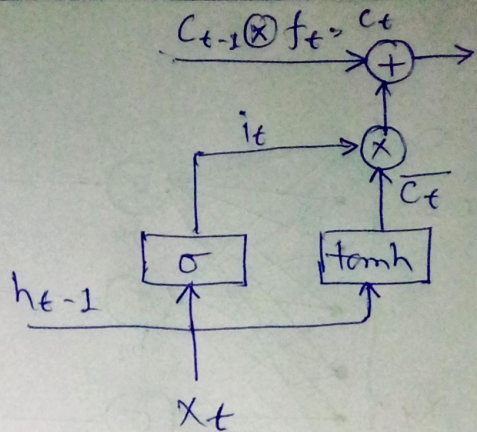 C_{t-1} ⊗ f_t = C_t
+
i_t
×
\overline{C_t}
σ
tanh
h_{t-1}
x_t